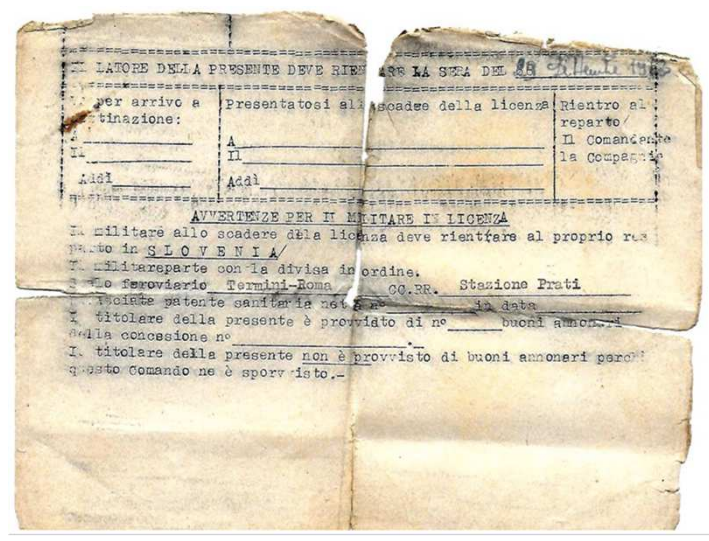 IL LATORE DELLA PRESENTE DEVE RIENTRARE LA SERA DEL
per arrivo a
tinazione:
A
Il
Addì
Presentatosi alla scadee della licenza
A
Il
Addì
Rientro al
reparto/
Il Comandante
la Compagnia
AVVERTENZE PER Il MILITARE IN LICENZA
Il militare allo scadere della licenza deve rientrare al proprio re
parto in S L O V E N I A/
Il militareparte con la divisa in ordine.
Scalo feroviario Termini-Roma CC.RR. Stazione Prati
Rilasciata patente sanitaria netta n° in data
Il titolare della presente è provvidto di n° buoni annoneri
della concessione n° .-
Il titolare della presente non è provvisto di buoni annoneri perchè
questo Comando ne è sporvvisto.-